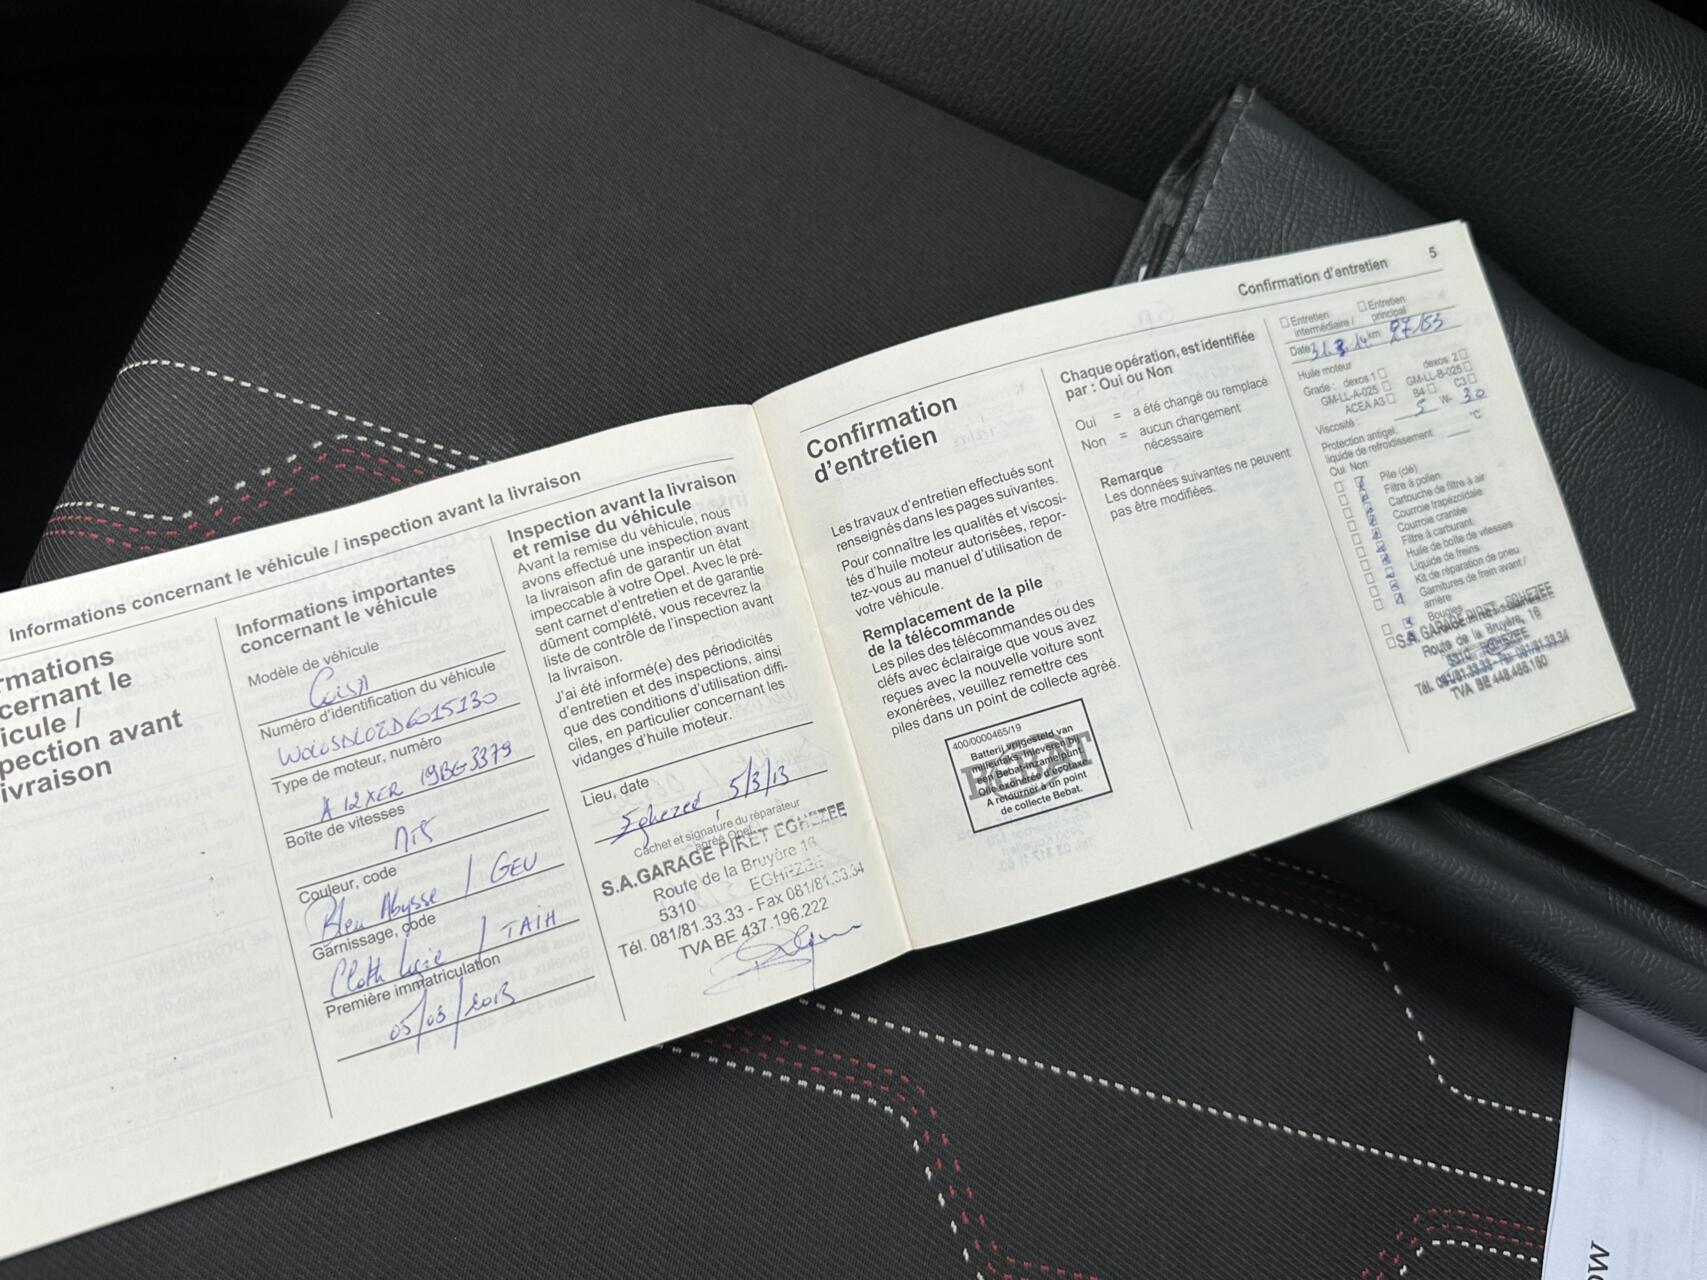 Informations concernant le véhicule / inspection avant la livraison
rmations
cernant le
icule /
pection avant
ivraison
Informations importantes
concernant le véhicule
Modèle de véhicule
Corsa
Numéro d'identification du véhicule
W0L0SDL08D6015130
Type de moteur, numéro
A12XER 19BG3379
Boîte de vitesses
MT5
Couleur, code
Bleu Abysse / GEU
Garnissage, code
Cloth / TAIH
Première immatriculation
05/03/2013
Inspection avant la livraison
et remise du véhicule
Avant la remise du véhicule, nous
avons effectué une inspection avant
la livraison afin de garantir un état
impeccable à votre Opel. Avec le pré-
sent carnet d'entretien et de garantie
dûment complété, vous recevrez la
liste de contrôle de l'inspection avant
la livraison.
J'ai été informé(e) des périodicités
d'entretien et des inspections, ainsi
que des conditions d'utilisation diffi-
ciles, en particulier concernant les
vidanges d'huile moteur.
Lieu, date
Eghezee, 5/3/13
Cachet et signature du réparateur
agréé Opel
S.A. GARAGE PIRET EGHEZEE
Route de la Bruyère 16
5310 EGHEZEE
Tél. 081/81.33.33 - Fax 081/81.33.34
TVA BE 437.196.222
Confirmation d'entretien 5
Confirmation
d'entretien
Les travaux d'entretien effectués sont
renseignés dans les pages suivantes.
Pour connaître les qualités et viscosi-
tés d'huile moteur autorisées, repor-
tez-vous au manuel d'utilisation de
votre véhicule.
Remplacement de la pile
de la télécommande
Les piles des télécommandes ou des
clefs avec éclairage que vous avez
reçues avec la nouvelle voiture sont
exonérées, veuillez remettre ces
piles dans un point de collecte agréé.
400/0000465/19
BEBAT
Batterij vrijgesteld van
milieutaks. Inleveren bij
een Bebat-inzamelpunt.
Pile exonérée d'écotaxe.
A retourner à un point
de collecte Bebat.
Chaque opération, est identifiée
par : Oui ou Non
Oui = a été changé ou remplacé
Non = aucun changement
nécessaire
Remarque
Les données suivantes ne peuvent
pas être modifiées.
Entretien
intermédiaire /
Entretien
principal
Date 31.3.14 km 27153
Huile moteur
Grade : dexos 1 dexos 2
GM-LL-A-025 GM-LL-B-025
ACEA A3 B4 C3
Viscosité : 5 W- 30
Protection antigel,
liquide de refroidissement °C
Oui Non
Pile (clé)
Filtre à pollen
Cartouche de filtre à air
Courroie trapézoïdale
Courroie crantée
Filtre à carburant
Huile de boîte de vitesses
Liquide de freins
Kit de réparation de pneu
Garnitures de frein avant /
arrière
Bougies
S.A. GARAGE PIRET EGHEZEE
Route de la Bruyère, 16
5310 EGHEZEE
Tél. 081/81.33.33 - Fax 081/81.33.34
TVA BE 448.466.160
ow